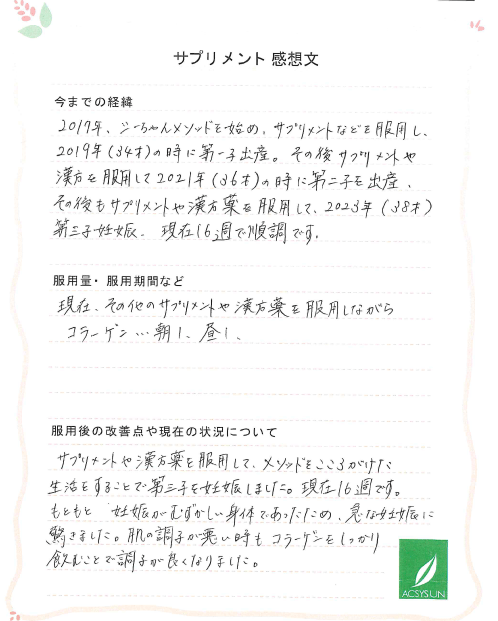 サプリメント 感想文
今までの経緯
2017年、ジーちゃんメソッドを始め、サプリメントなどを服用し、
2019年(34才)の時に第一子出産。その後サプリメントや
漢方を服用して2021年(36才)の時に第二子を出産、
その後もサプリメントや漢方薬を服用して、2023年(38才)
第三子妊娠、現在16週で順調です。
服用量・服用期間など
現在、その他のサプリメントや漢方薬を服用しながら
コラーゲン…朝1、昼1、
服用後の改善点や現在の状況について
サプリメントや漢方薬を服用して、メソッドをこころがけた
生活をすることで第三子を妊娠しました。現在16週です。
もともと 妊娠がむずかしい身体であったため、急な妊娠に
驚きました。肌の調子が悪い時も コラーゲンをしっかり
飲むことで調子が良くなりました。
ACSYSUN